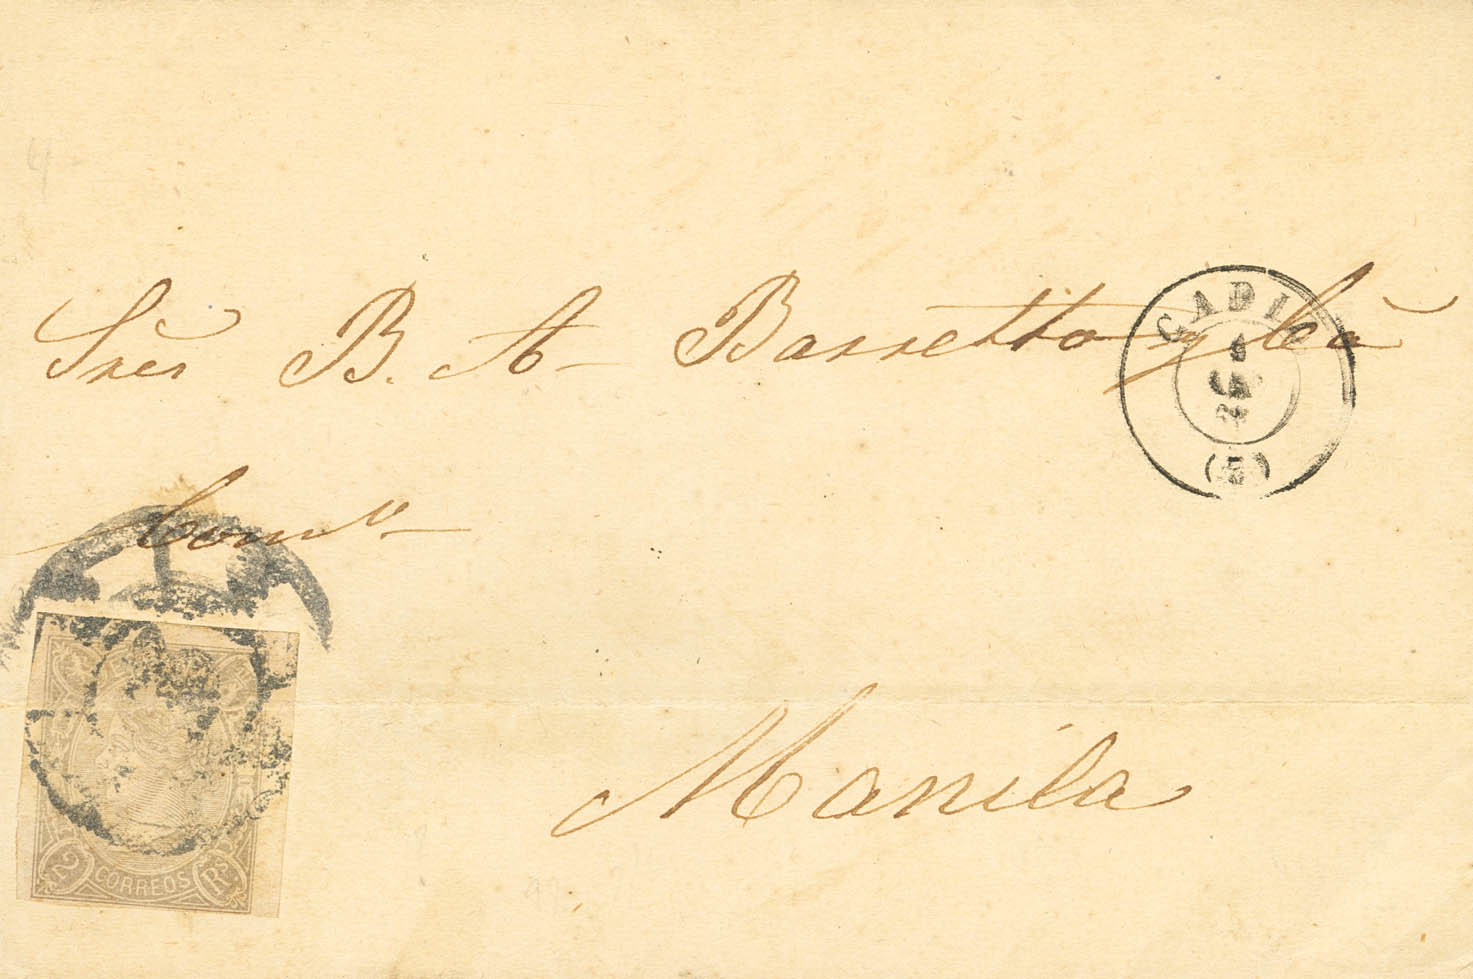 Sres B. A. Barretto y Ca
CADIZ
(5)
Comº
Manila
2 CORREOS Rs